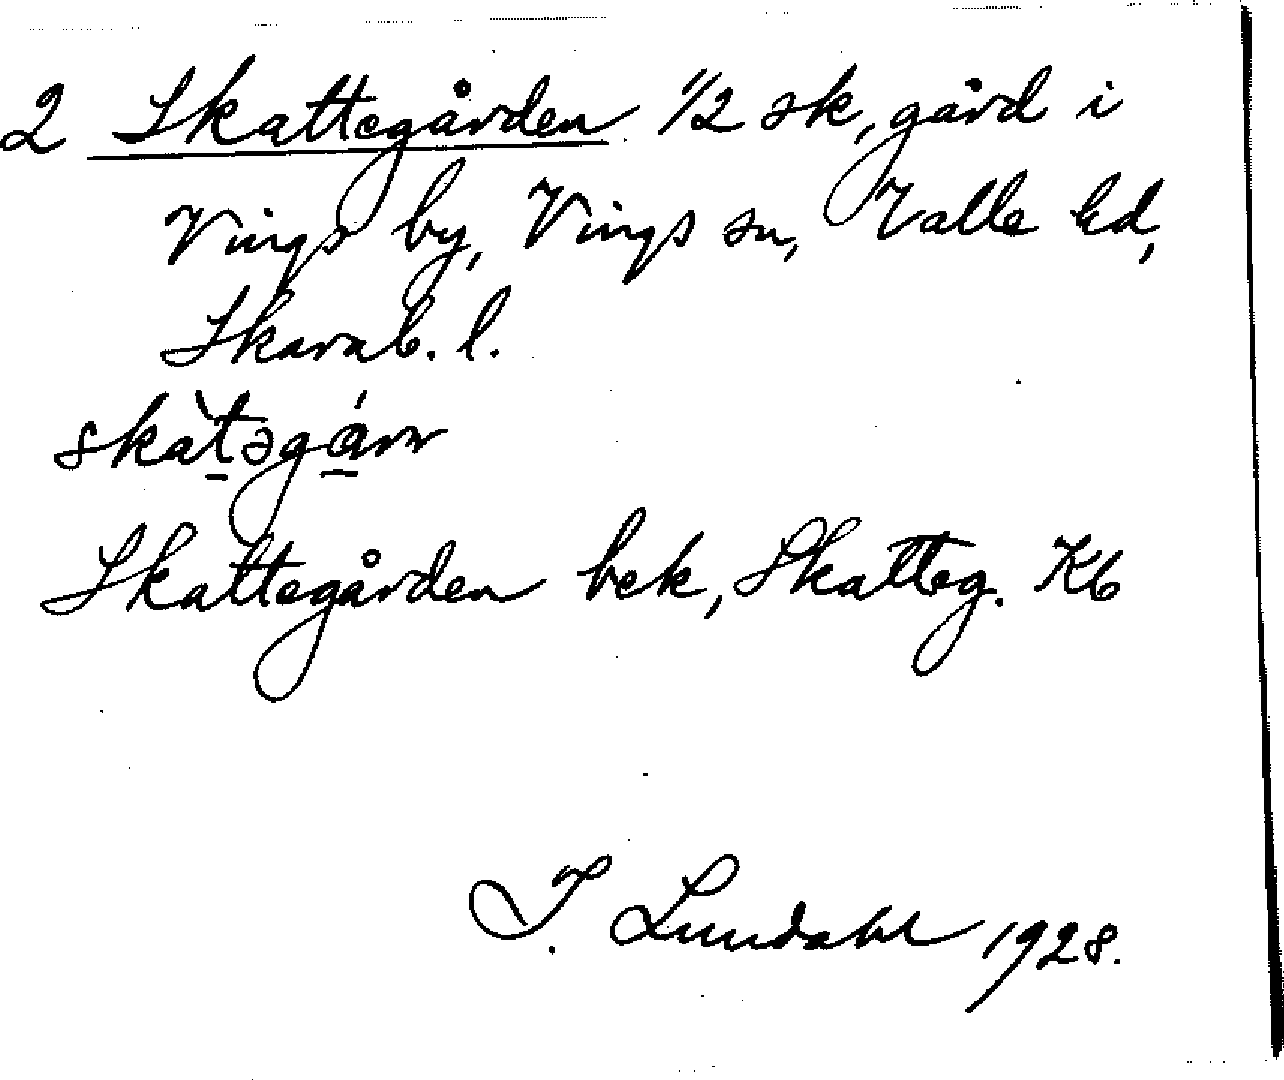 2 Skattegården 1/2 sk, gård i
Vings by, Vings sn, Valle hd,
Skarab. l.
skàtəgá̱rn
Skattegården bek, Skatteg. Kb
I. Lundahl 1928.